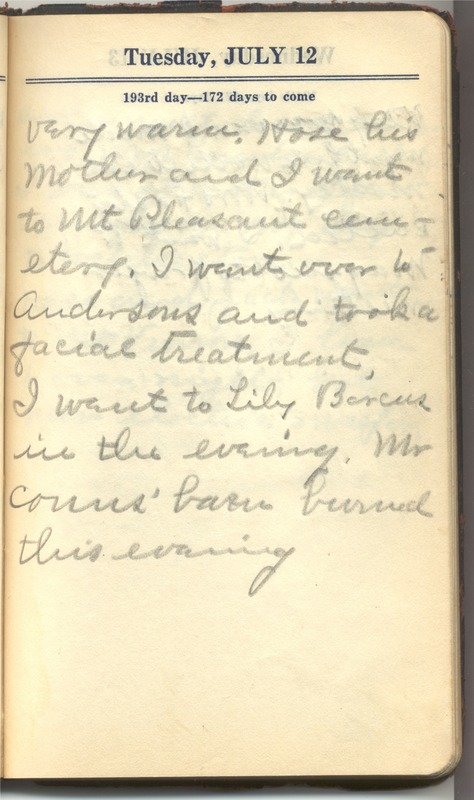 Tuesday, JULY 12
193rd day—172 days to come
very warm. Hose his
Mother and I want
to Mt Pleasant cem-
etery. I want over to
Andersons and took a
facial treatment,
I want to Lily Barcus
in the evening. Mr
Conns' barn burned
this evening